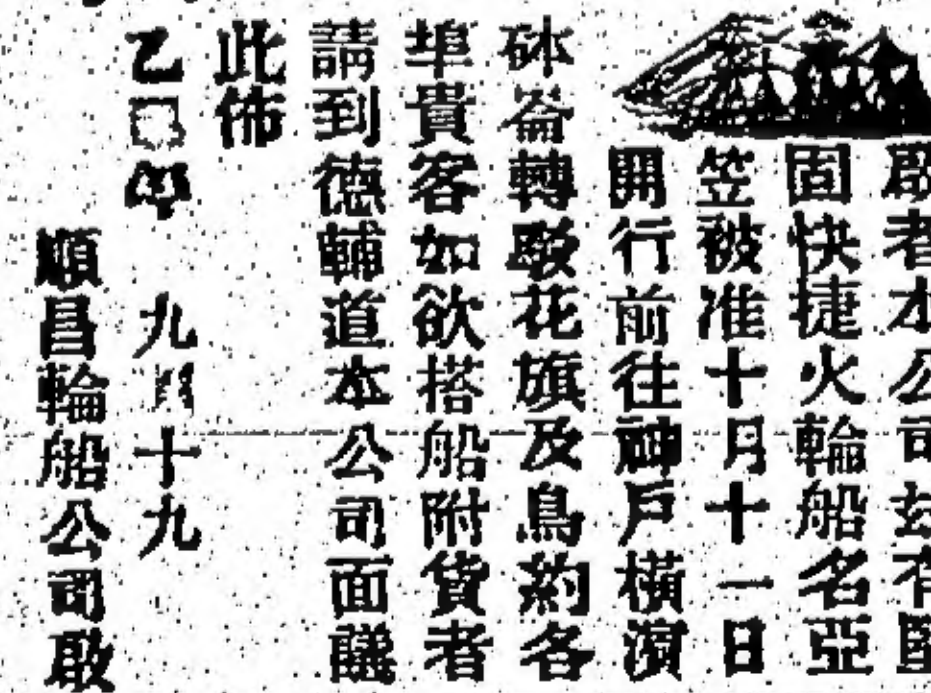 啟者本公司玆有堅
固快捷火輪船名亞
笠被准十月十一日
開行前往神戶橫濱
砵崙轉駁花旗及鳥約各
埠貴客如欲搭船附貨者
請到德輔道本公司面議
此佈
乙年 九月十九
順昌輪船公司啟